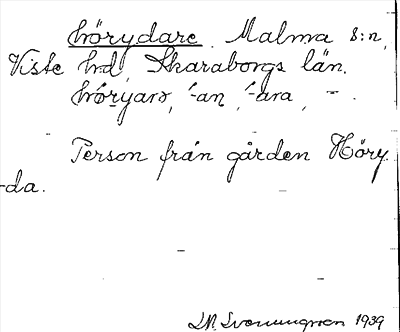 hörydare. Malma s:n,
Viste hrd, Skaraborgs län.
hö́ryarə, ´-an, ´-ara, –.
Person från gården Höry-
da.
1939